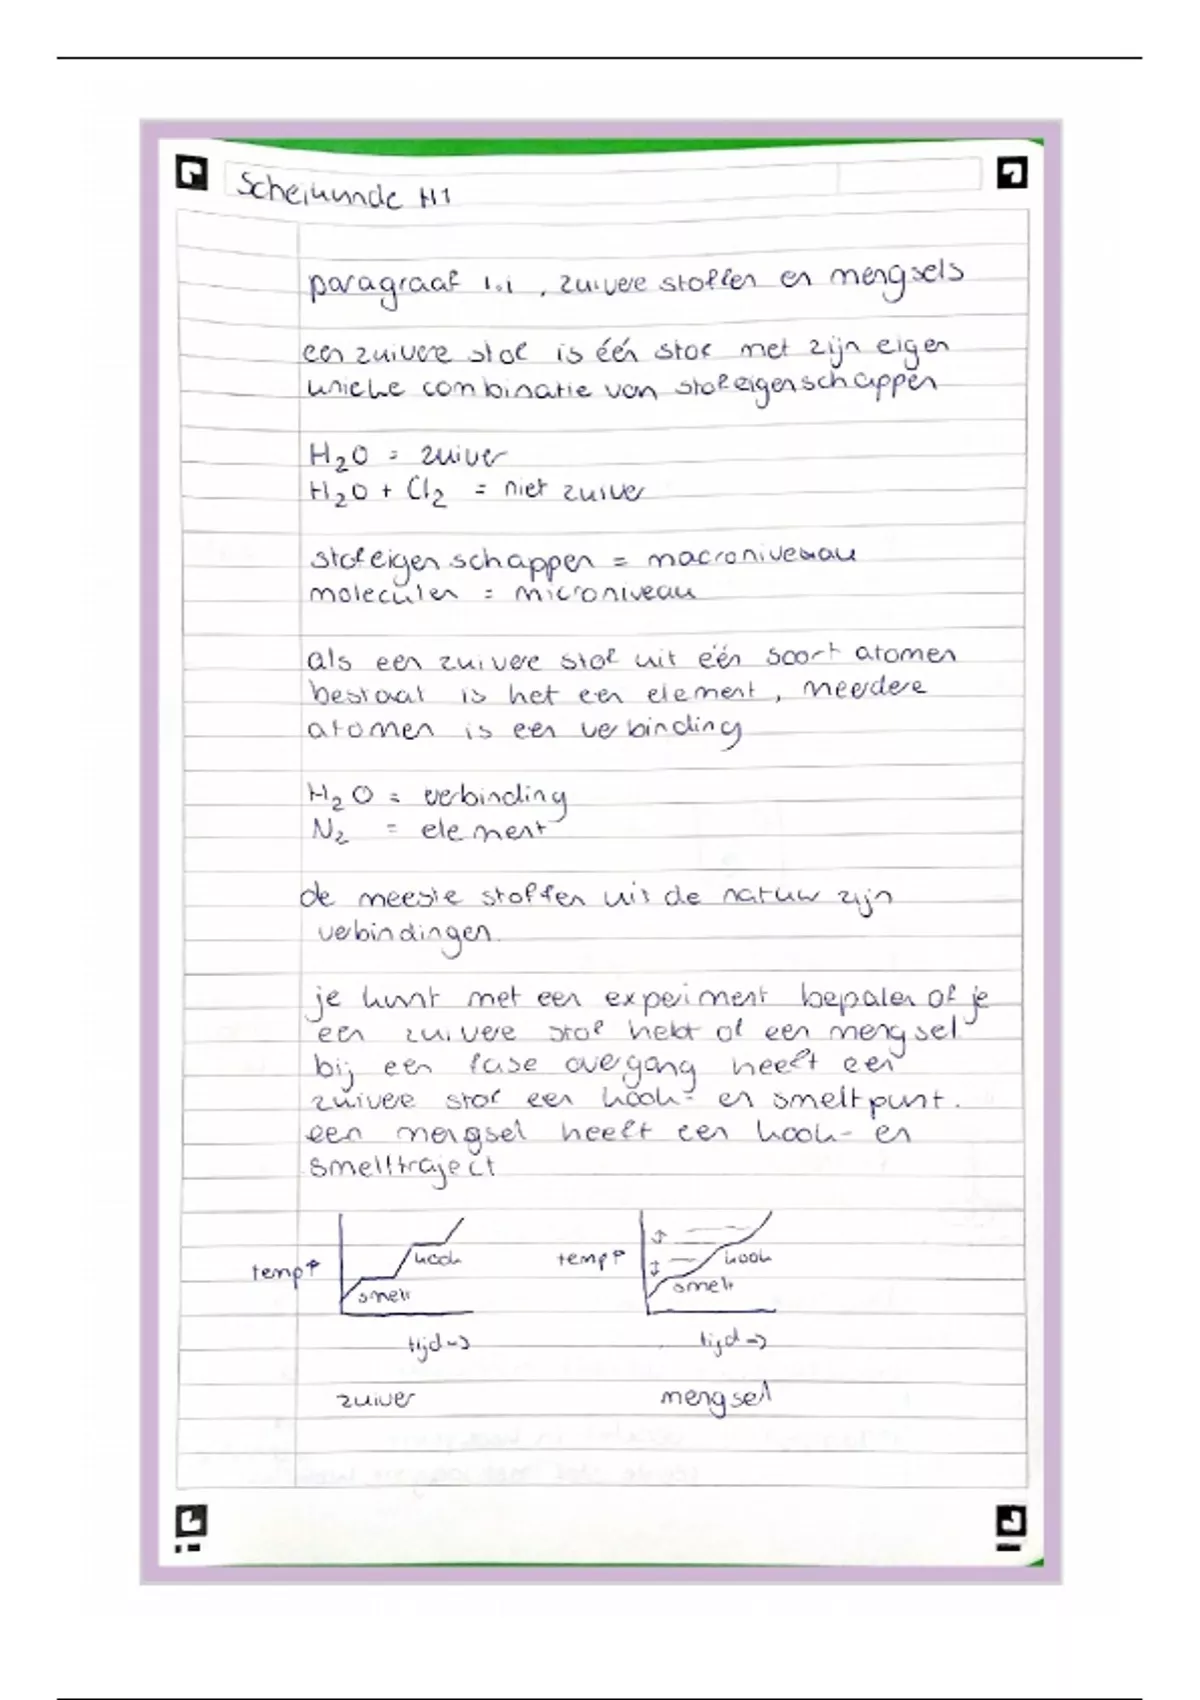 Scheikunde H1
paragraaf 1.1, zuivere stoffen en mengsels
een zuivere stof is één stof met zijn eigen
unieke combinatie van stofeigenschappen
H2O = zuiver
H2O + Cl2 = niet zuiver
stofeigenschappen = macroniveau
moleculen = microniveau
als een zuivere stof uit één soort atomen
bestaat is het een element, meerdere
atomen is een verbinding
H2O = verbinding
N2 = element
de meeste stoffen uit de natuur zijn
verbindingen.
je kunt met een experiment bepalen of je
een zuivere stof hebt of een mengsel.
bij een fase overgang heeft een
zuivere stof een kook- en smeltpunt.
een mengsel heeft een kook- en
smelttraject
temp↑ kook smelt
tijd→
zuiver
temp↑ kook smelt
tijd→
mengsel